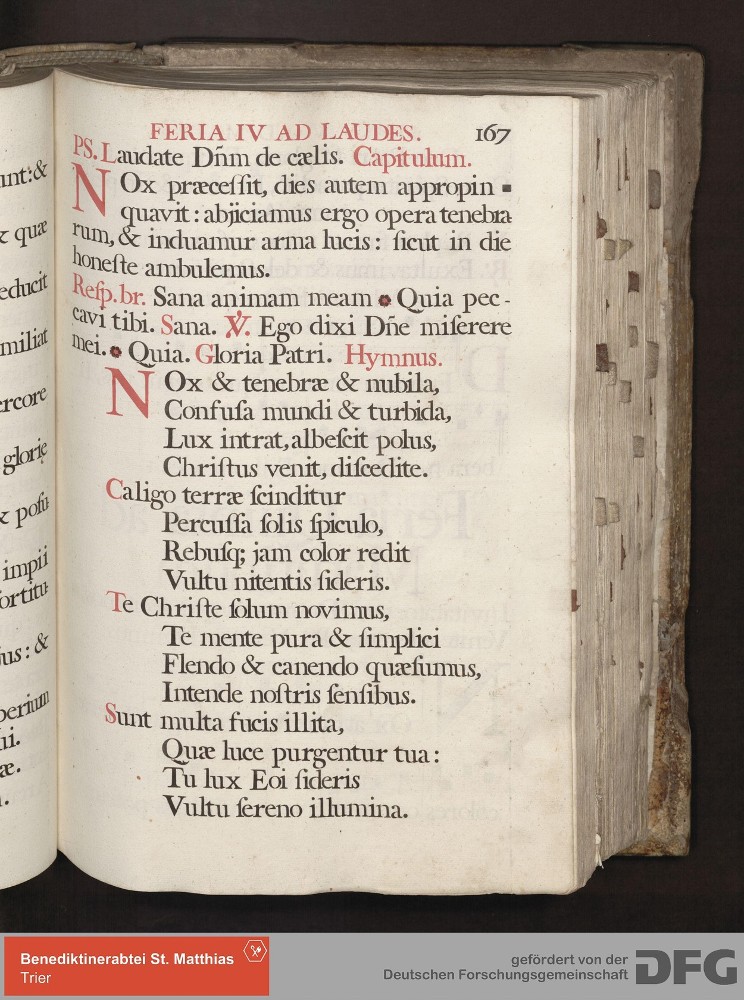 unt: &
& quæ
educit
miliat
ercore
glorię
& posu
impii
ortitu
us: &
perium
ii.
æ.
FERIA IV AD LAUDES. 167
PS. Laudate Dñm de cælis. Capitulum.
NOx præceſſit, dies autem appropin
quavit : abjiciamus ergo opera tenebra
rum, & induamur arma lucis : ſicut in die
honeſte ambulemus.
Reſp. br. Sana animam meam * Quia pec-
cavi tibi. Sana. ℣. Ego dixi Dñe miſerere
mei. * Quia. Gloria Patri. Hymnus.
NOx & tenebræ & nubila,
Confuſa mundi & turbida,
Lux intrat, albeſcit polus,
Chriſtus venit, diſcedite.
Caligo terræ ſcinditur
Percuſſa ſolis ſpiculo,
Rebuſq; jam color redit
Vultu nitentis ſideris.
Te Chriſte ſolum novimus,
Te mente pura & ſimplici
Flendo & canendo quæſumus,
Intende noſtris ſenſibus.
Sunt multa fucis illita,
Quæ luce purgentur tua :
Tu lux Eoi ſideris
Vultu ſereno illumina.
Benediktinerabtei St. Matthias
Trier
gefördert von der
Deutschen Forschungsgemeinschaft
DFG